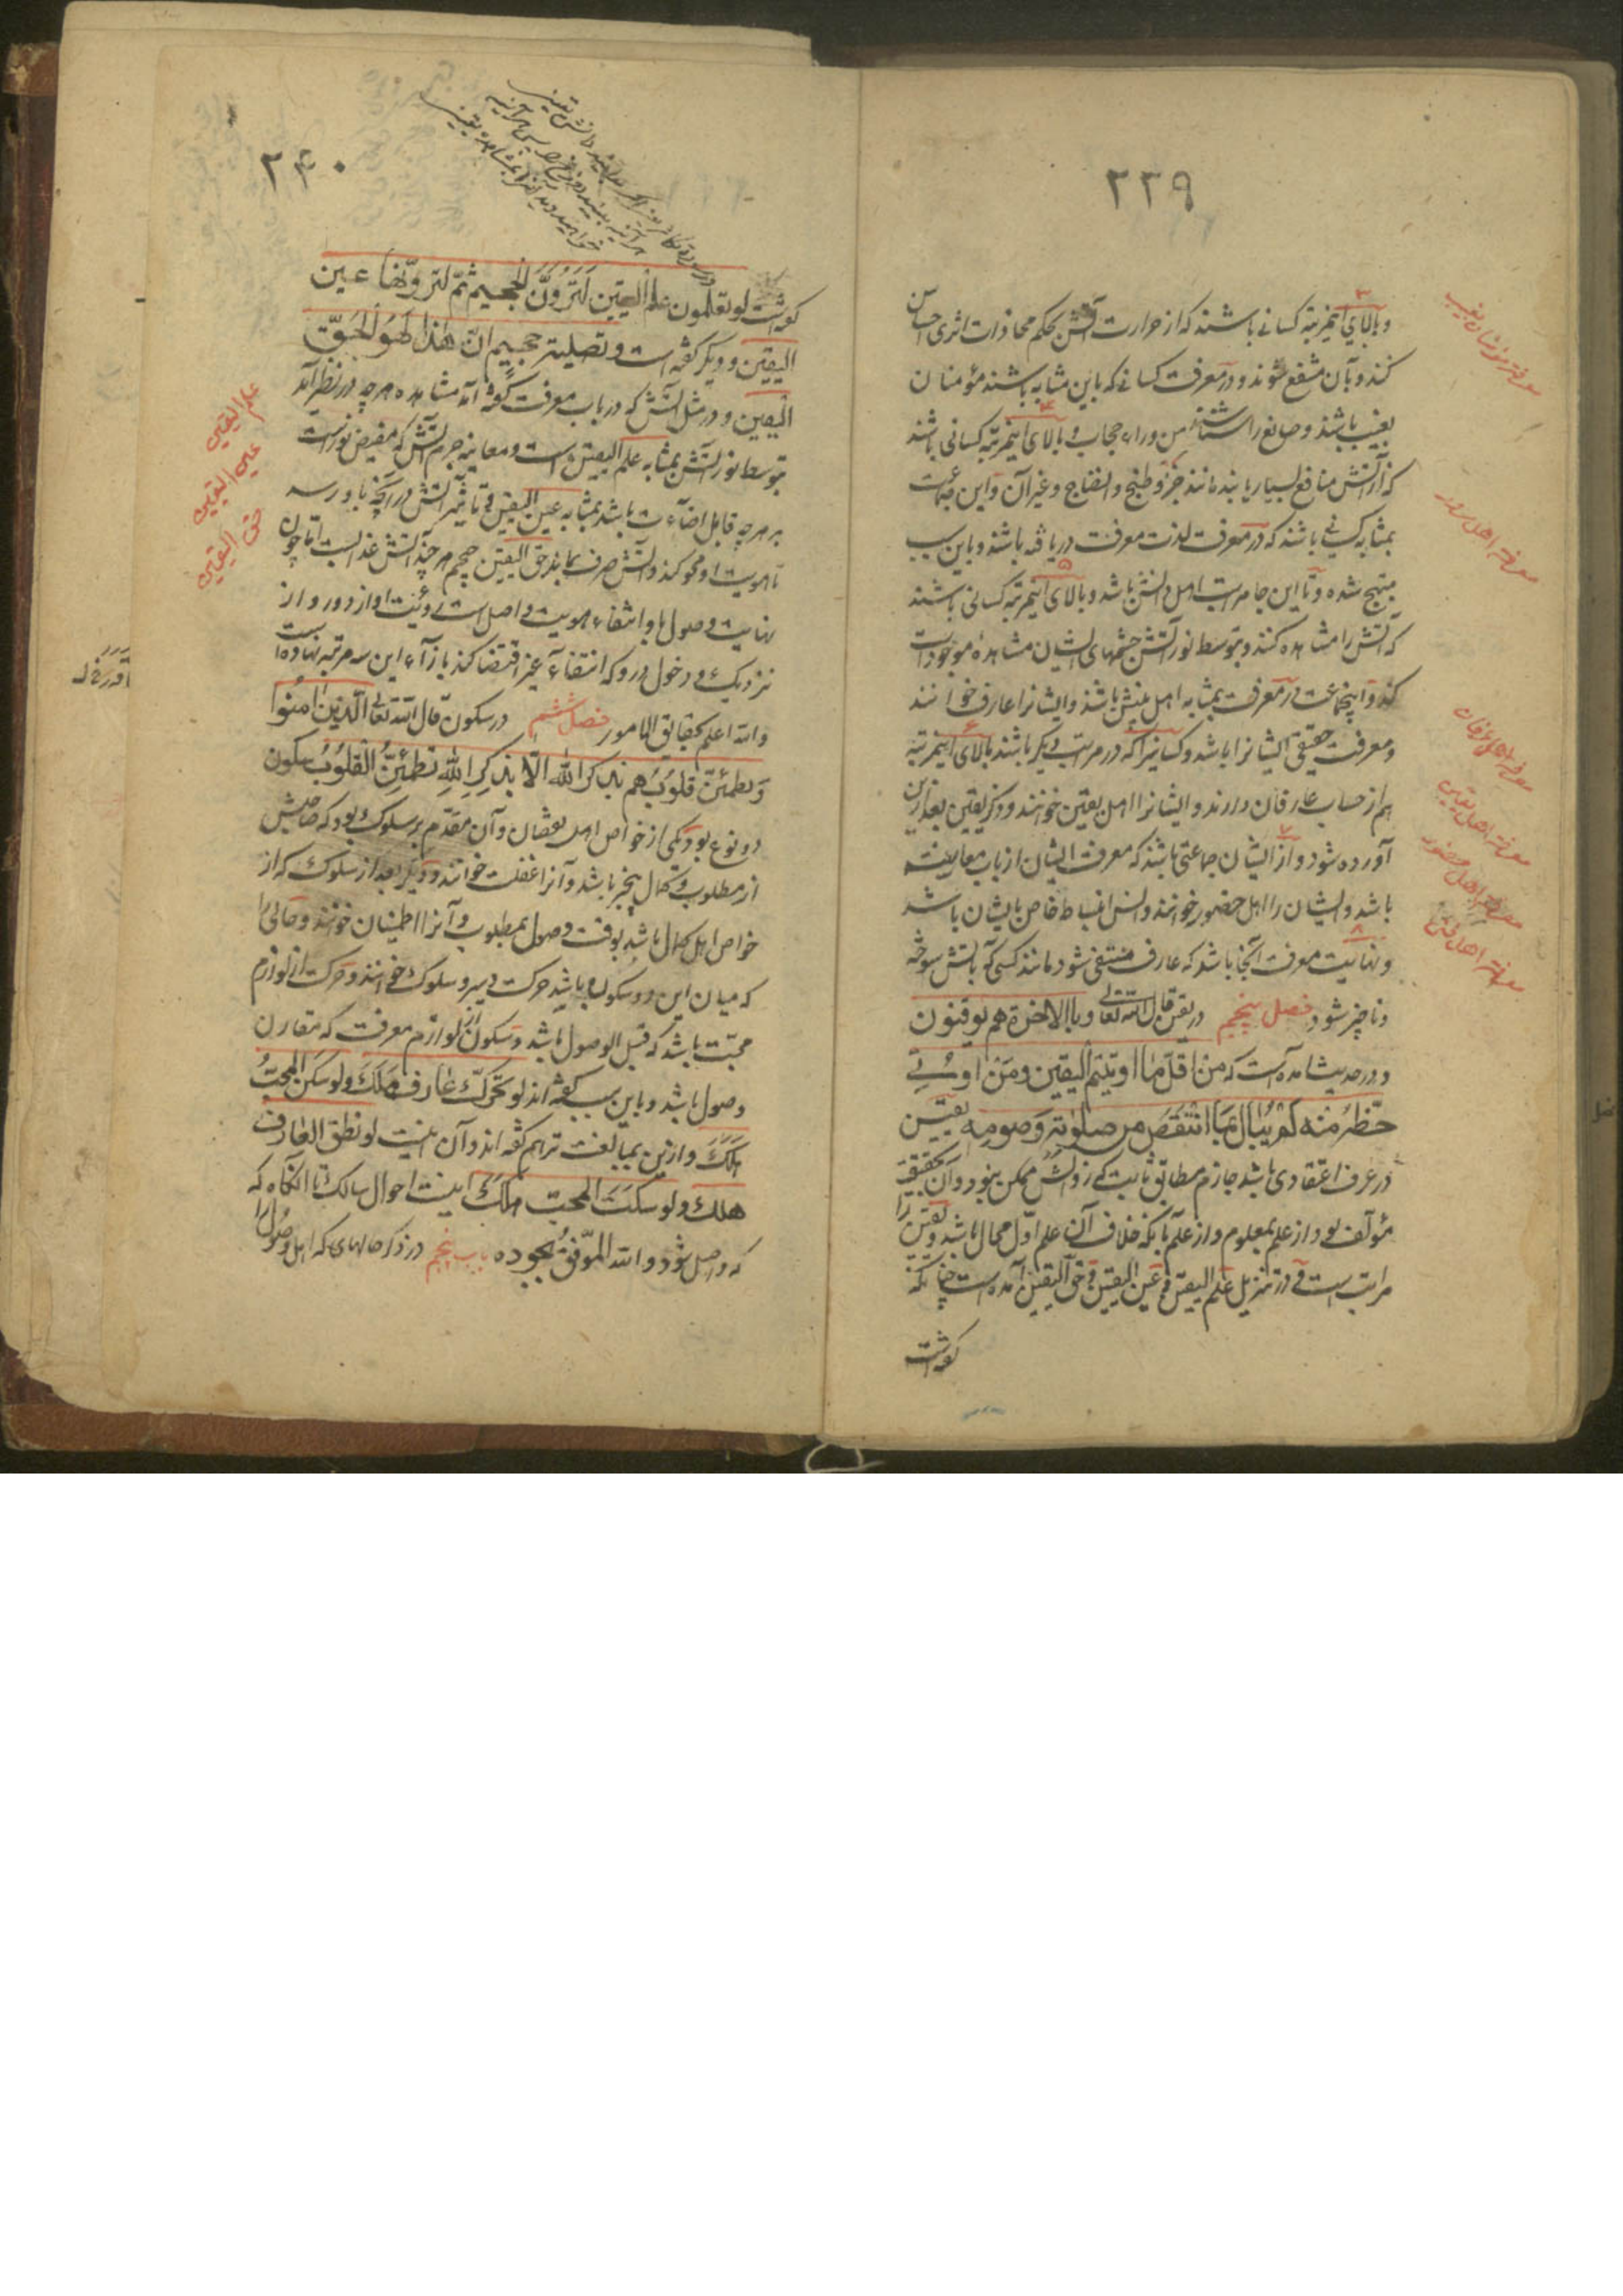 ۲۳۹
وبالای اینمرتبه کسانے باشند که از حرارت آتش بحکم محاذات اثری احساس
کنند وبآن منتفع شوند ودر معرفت کسانے که باین مثابه باشند مؤمنان
بغیب باشند وصانع را شناسند من وراء حجاب وبالای اینمرتبه کسانی باشند
که از آتش منافع بسیار یابند مانند خبز وطبخ وانضاج وغیر آن واین جماعت
بمثابه کسانے باشند که در معرفت لذت معرفت دریافته باشند وباین سبب
مبتهج شده وتا این جا مراتب اهل دانش باشد وبالای اینمرتبه کسانی باشند
که آتش را مشاهده کنند وبتوسط نور آتش چشمهای ایشان مشاهدهٔ موجودات
کند واینجماعت در معرفت بمثابه اهل بینش باشند وایشانرا عارف خوانند
ومعرفت حقیقی ایشانرا باشد وکسانیرا که در مراتب دیگر باشند بالای اینمرتبه
هم از حساب عارفان دارند وایشانرا اهل یقین خوانند وذکر یقین بعد ازین
آورده شود واز ایشان جماعتی باشند که معرفت ایشان از باب معاینه
باشد وایشان را اهل حضور خوانند وانس انبساط خاص بایشان باشد
ونهایت معرفت اینجا باشد که عارف منتفی شود مانند کسی که بآتش سوخته
وناچیز شود فصل پنجم در یقین قال الله تعالی وبالاخرة هم یوقنون
ودر حدیث آمده است که من اقل ما اوتیتم الیقین ومن اوتی
حظه منه لم یبال بما انتقص من صلوته وصومه یقین
در عرف اعتقادی باشد جازم مطابق ثابت که زوالش ممکن نبود وآن بحقیقت
مؤلف بود از علم بمعلوم واز علم بآنکه خلاف آن علم اول محال باشد ویقین را
مراتب است ودر تنزیل علم الیقین وعین الیقین وحق الیقین آمده است چنانکه
کفته است
معرفة مؤمنان بغیب
معرفة اهل سرور
معرفة اهل عرفان
معرفة اهل یقین
معرفة اهل حضور
معرفة اهل فنا
۲۴۰
کفته است لو تعلمون علم الیقین لَتَرَوُنَّ الجحیم ثمّ لترونّها عین
الیقین ودیگر کفته است وتصلیة جحیم انّ هذا لهو الحقّ
الیقین ودر مثل آتش که در باب معرفت کفته آمد مشاهده هرچه در نظر آید
بتوسط نور آتش بمثابه علم الیقین است ومعاینه جرم آتش که مفیض نور است
بر هرچه قابل اضاءت باشد بمثابه عین الیقین وتأثیر آتش در آنچه باو رسد
تا هویت او محو کند وآتش صرف بماند حق الیقین جحیم هر چند آتش عذابست اما چون
نهایت وصول باو انتفاء هویت واصل است رویت او از دور واز
نزدیک ودخول در او که انتفاء غیر اقتضا کند بازاء این سه مرتبه نهاده است
والله اعلم بحقایق الامور فصل ششم در سکون قال الله تعالی الذین امنوا
وتطمئنّ قلوبهم بذکر الله الا بذکر الله تطمئنّ القلوب سکون
دو نوع بود یکی از خواص اهل نقصان وآن مقدم بر سلوک بود که صاحبش
از مطلوب وکمال بیخبر باشد وآنرا غفلت خوانند ودیگر بعد از سلوک که از
خواص اهل کمال باشد بوقت وصول بمطلوب وآنرا اطمینان خوانند وحالی را
که میان این دو سکون باشد حرکت وسیر وسلوک خوانند وحرکت از لوازم
محبّت باشد که قبل الوصول باشد وسکون از لوازم معرفت که مقارن
وصول باشد وباین سبب کفته اند لو تحرّک عارف هلک ولو سکن المحبّ
هلک وازین بمبالغت تر هم کفته اند وآن اینست لو نطق العارف
هلک ولو سکت المحب هلک اینست احوال سالک تا آنگاه که
که واصل شود والله الموفق بجوده باب پنجم در ذکر حالهای که اهل وصول را
علم الیقین
عین الیقین
حق الیقین